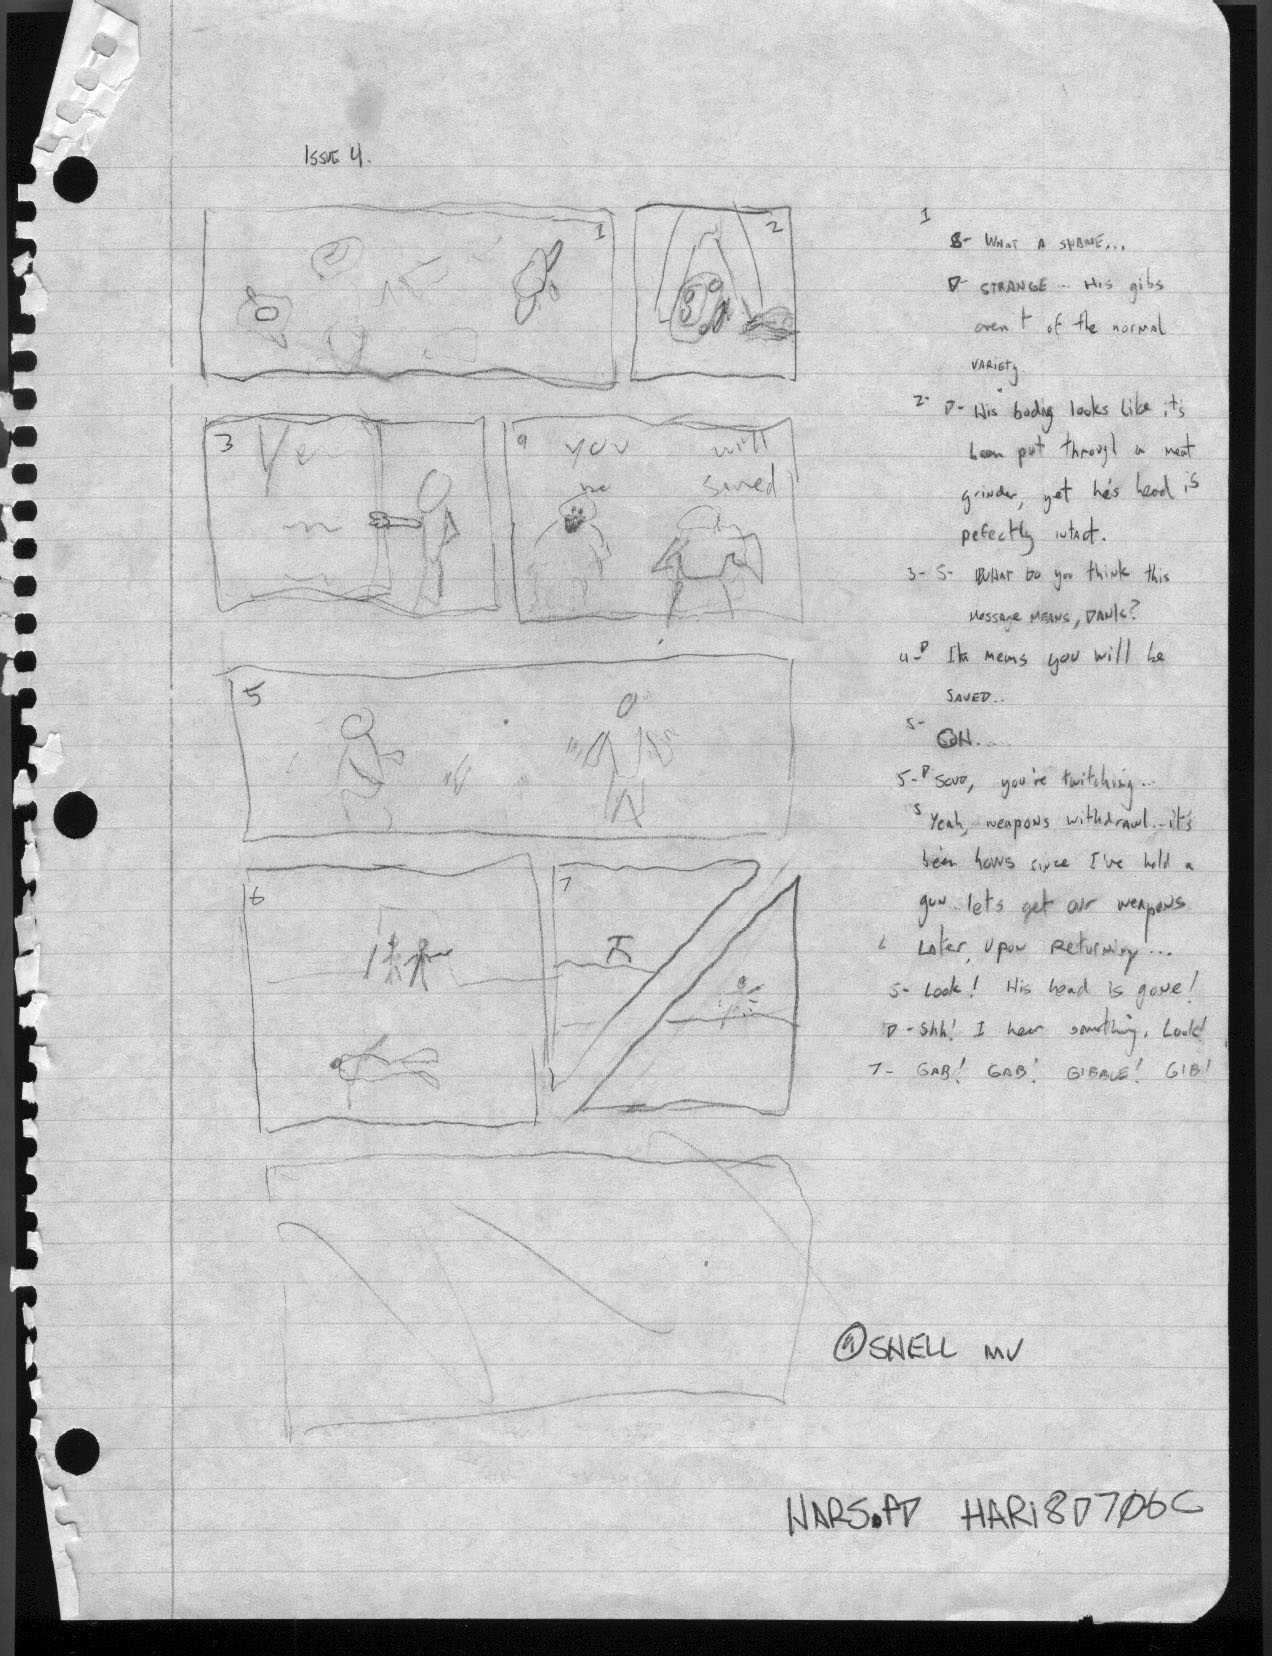 Issue 4.
1
2
1
S- WHAT A SHAME...
D- STRANGE... His gibs
aren't of the normal
VARIETY
2- D- His bodig looks like it's
been put through a meat
grinder, yet he's head is
pefectly intact.
3
9 you will
be saved
3- S- WHAT Do you think this
Message MEANS, DANK?
4- D It means you will be
SAVED..
S- OH.....
5
5- D SOUD, you're twitching...
S Yeah, weapons withdrawl...it's
been hours since I've held a
gun.. let's get our weapons
6
7
6 Later, Upon Returning...
S- Look! His head is gone!
D- Shh! I hear something. Look!
7- GAB! GAB! GIBBLE! GIB!
SHELL MV
HARS.PD HARI8D706C